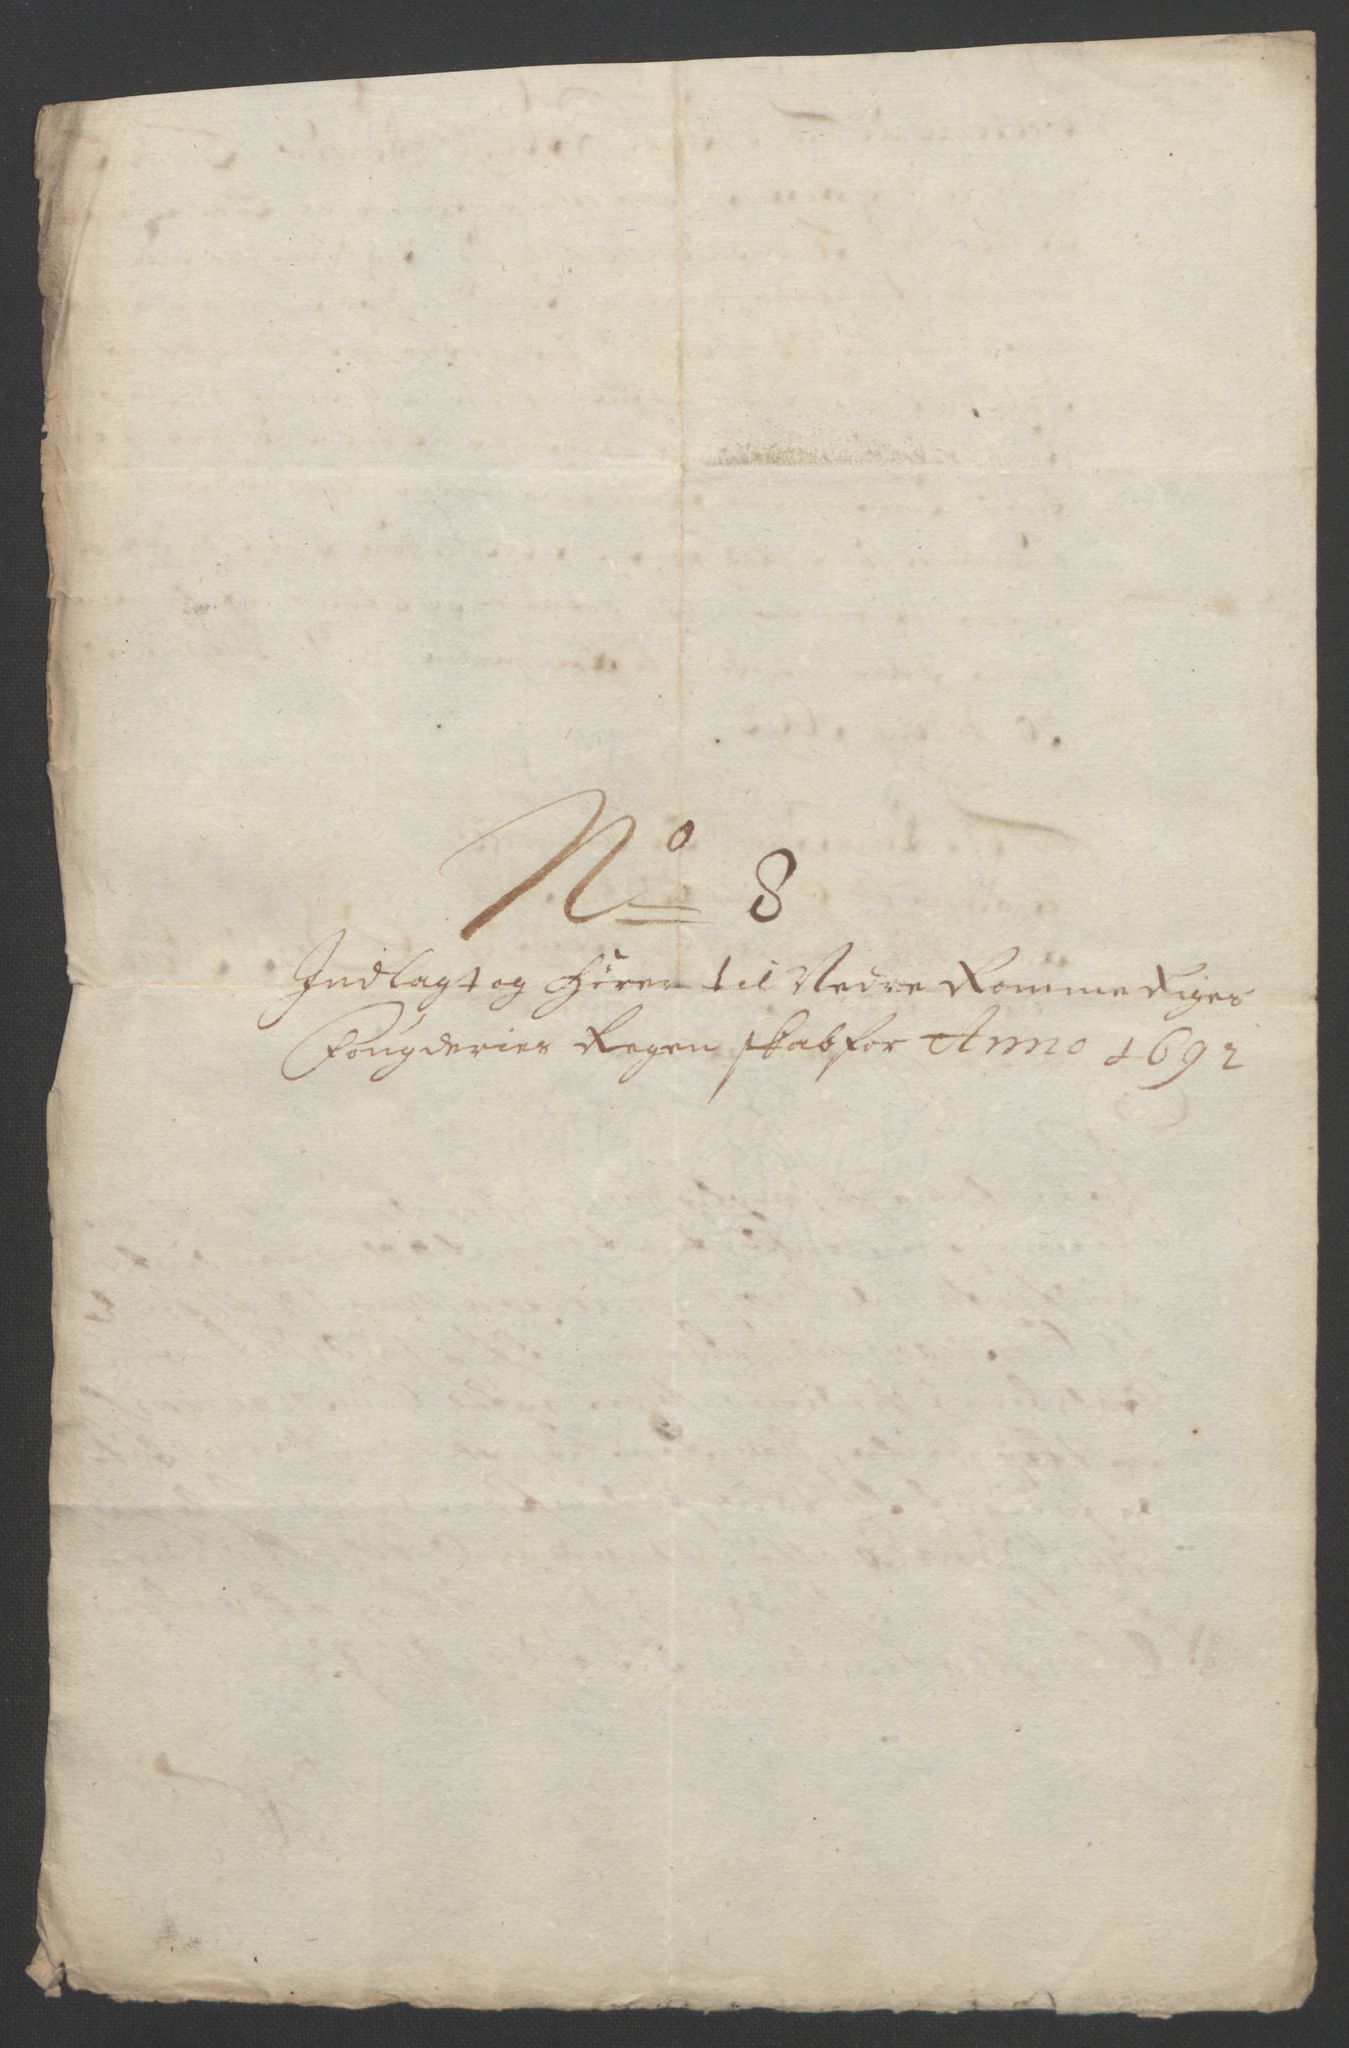 No 8
Indlagt og hörer til Nedre Rommeriges
Fougderies Regenskab for Anno 1692